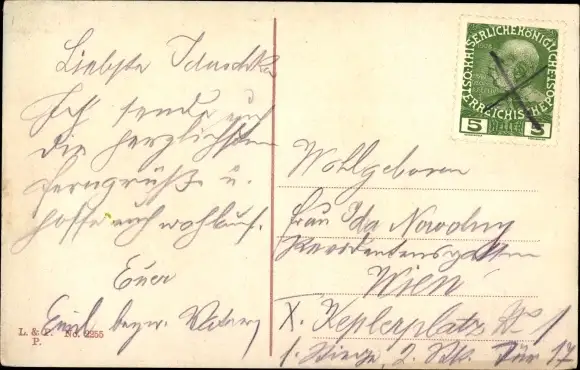 Liebste Iduschka
Ich sende euch
die herzlichsten
Ferngrüße u.
hoffe euch wohlauf.
Euer
Emil
L. & P. No. 2255
P.
KAISERLICHE KÖNIGLICHE ÖSTERREICHISCHE POST
1908
5 HELLER 5
Wohlgeboren
Frau Ida Nowotny
Wien
X. Keplerplatz No 1
1. Stiege, 2. Stk. Tür 17